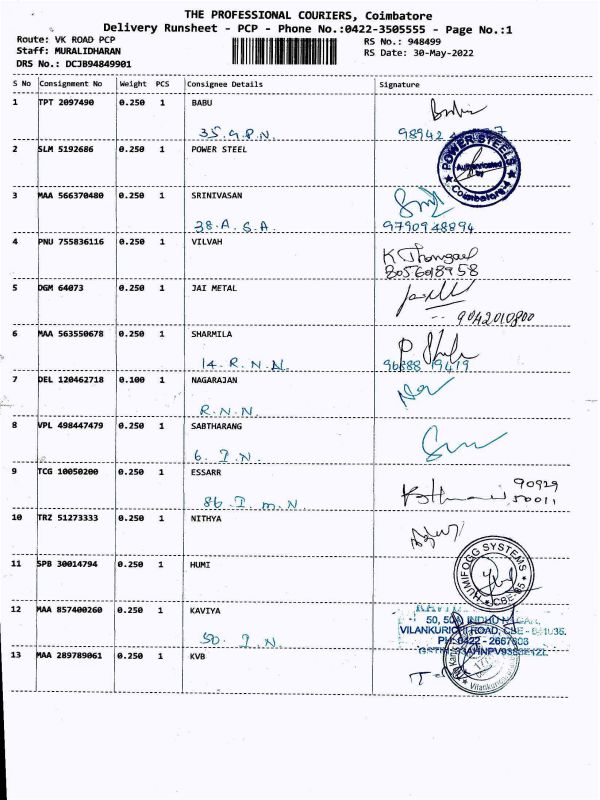 THE PROFESSIONAL COURIERS, Coimbatore
Delivery Runsheet - PCP - Phone No.:0422-3505555 - Page No.:1
Route: VK ROAD PCP RS No.: 948499
Staff: MURALIDHARAN RS Date: 30-May-2022
DRS No.: DCJB94849901
S No Consignment No Weight PCS Consignee Details Signature
1 TPT 2097490 0.250 1 BABU
35. G.P.N. 98942
2 SLM 5192686 0.250 1 POWER STEEL
POWER STEELS
Authenticated
by
Coimbatore-4
3 MAA 566370480 0.250 1 SRINIVASAN
38.A. S.A. 9790948894
4 PNU 755836116 0.250 1 VILVAH
8056018958
5 DGM 64073 0.250 1 JAI METAL
9042010800
6 MAA 563550678 0.250 1 SHARMILA
14. R. N. N. 96888 19419
7 DEL 120462718 0.100 1 NAGARAJAN
R. N. N.
8 VPL 498447479 0.250 1 SABTHARANG
6. I. N.
9 TCG 10050200 0.250 1 ESSARR
90929
86. I. m. N. 50011
10 TRZ 51273333 0.250 1 NITHYA
11 SPB 30014794 0.250 1 HUMI
HUMIFOGG SYSTEMS
CBE-35
12 MAA 857400260 0.250 1 KAVIYA
50, 50A INDHU NAGAR,
VILANKURICHI ROAD, CBE - 641035.
50. I. N. PH:0422 - 2667608
13 MAA 289789061 0.250 1 KVB